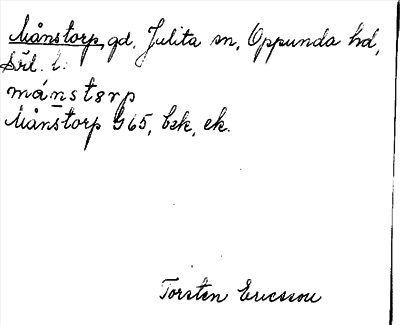 Månstorp, gd, Julita sn, Oppunda hd,
Srl. l.
månstsrp
Månstorp G 65, bek, ek.
Torsten Ericsson